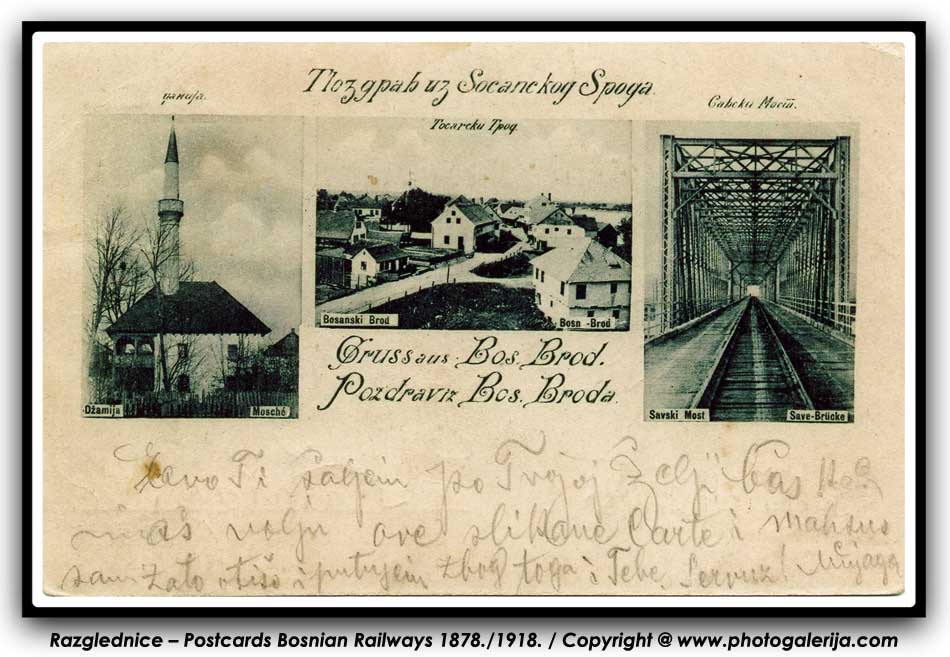 Поздрав из Босанског Брода.
џамија.
Босански Брод.
Савски Мост.
Džamija
Mosché
Bosanski Brod
Bosn-Brod
Savski Most
Save-Brücke
Gruss aus Bos. Brod.
Pozdrav iz Bos. Broda.
Evo Ti šaljem po Tvojoj Želji
imaš volju ove slikane Carte i mahsus
sam zato otišo i putujem zbog toga i Tebe. Servus! Mujaga
Razglednice – Postcards Bosnian Railways 1878./1918. / Copyright @ www.photogalerija.com